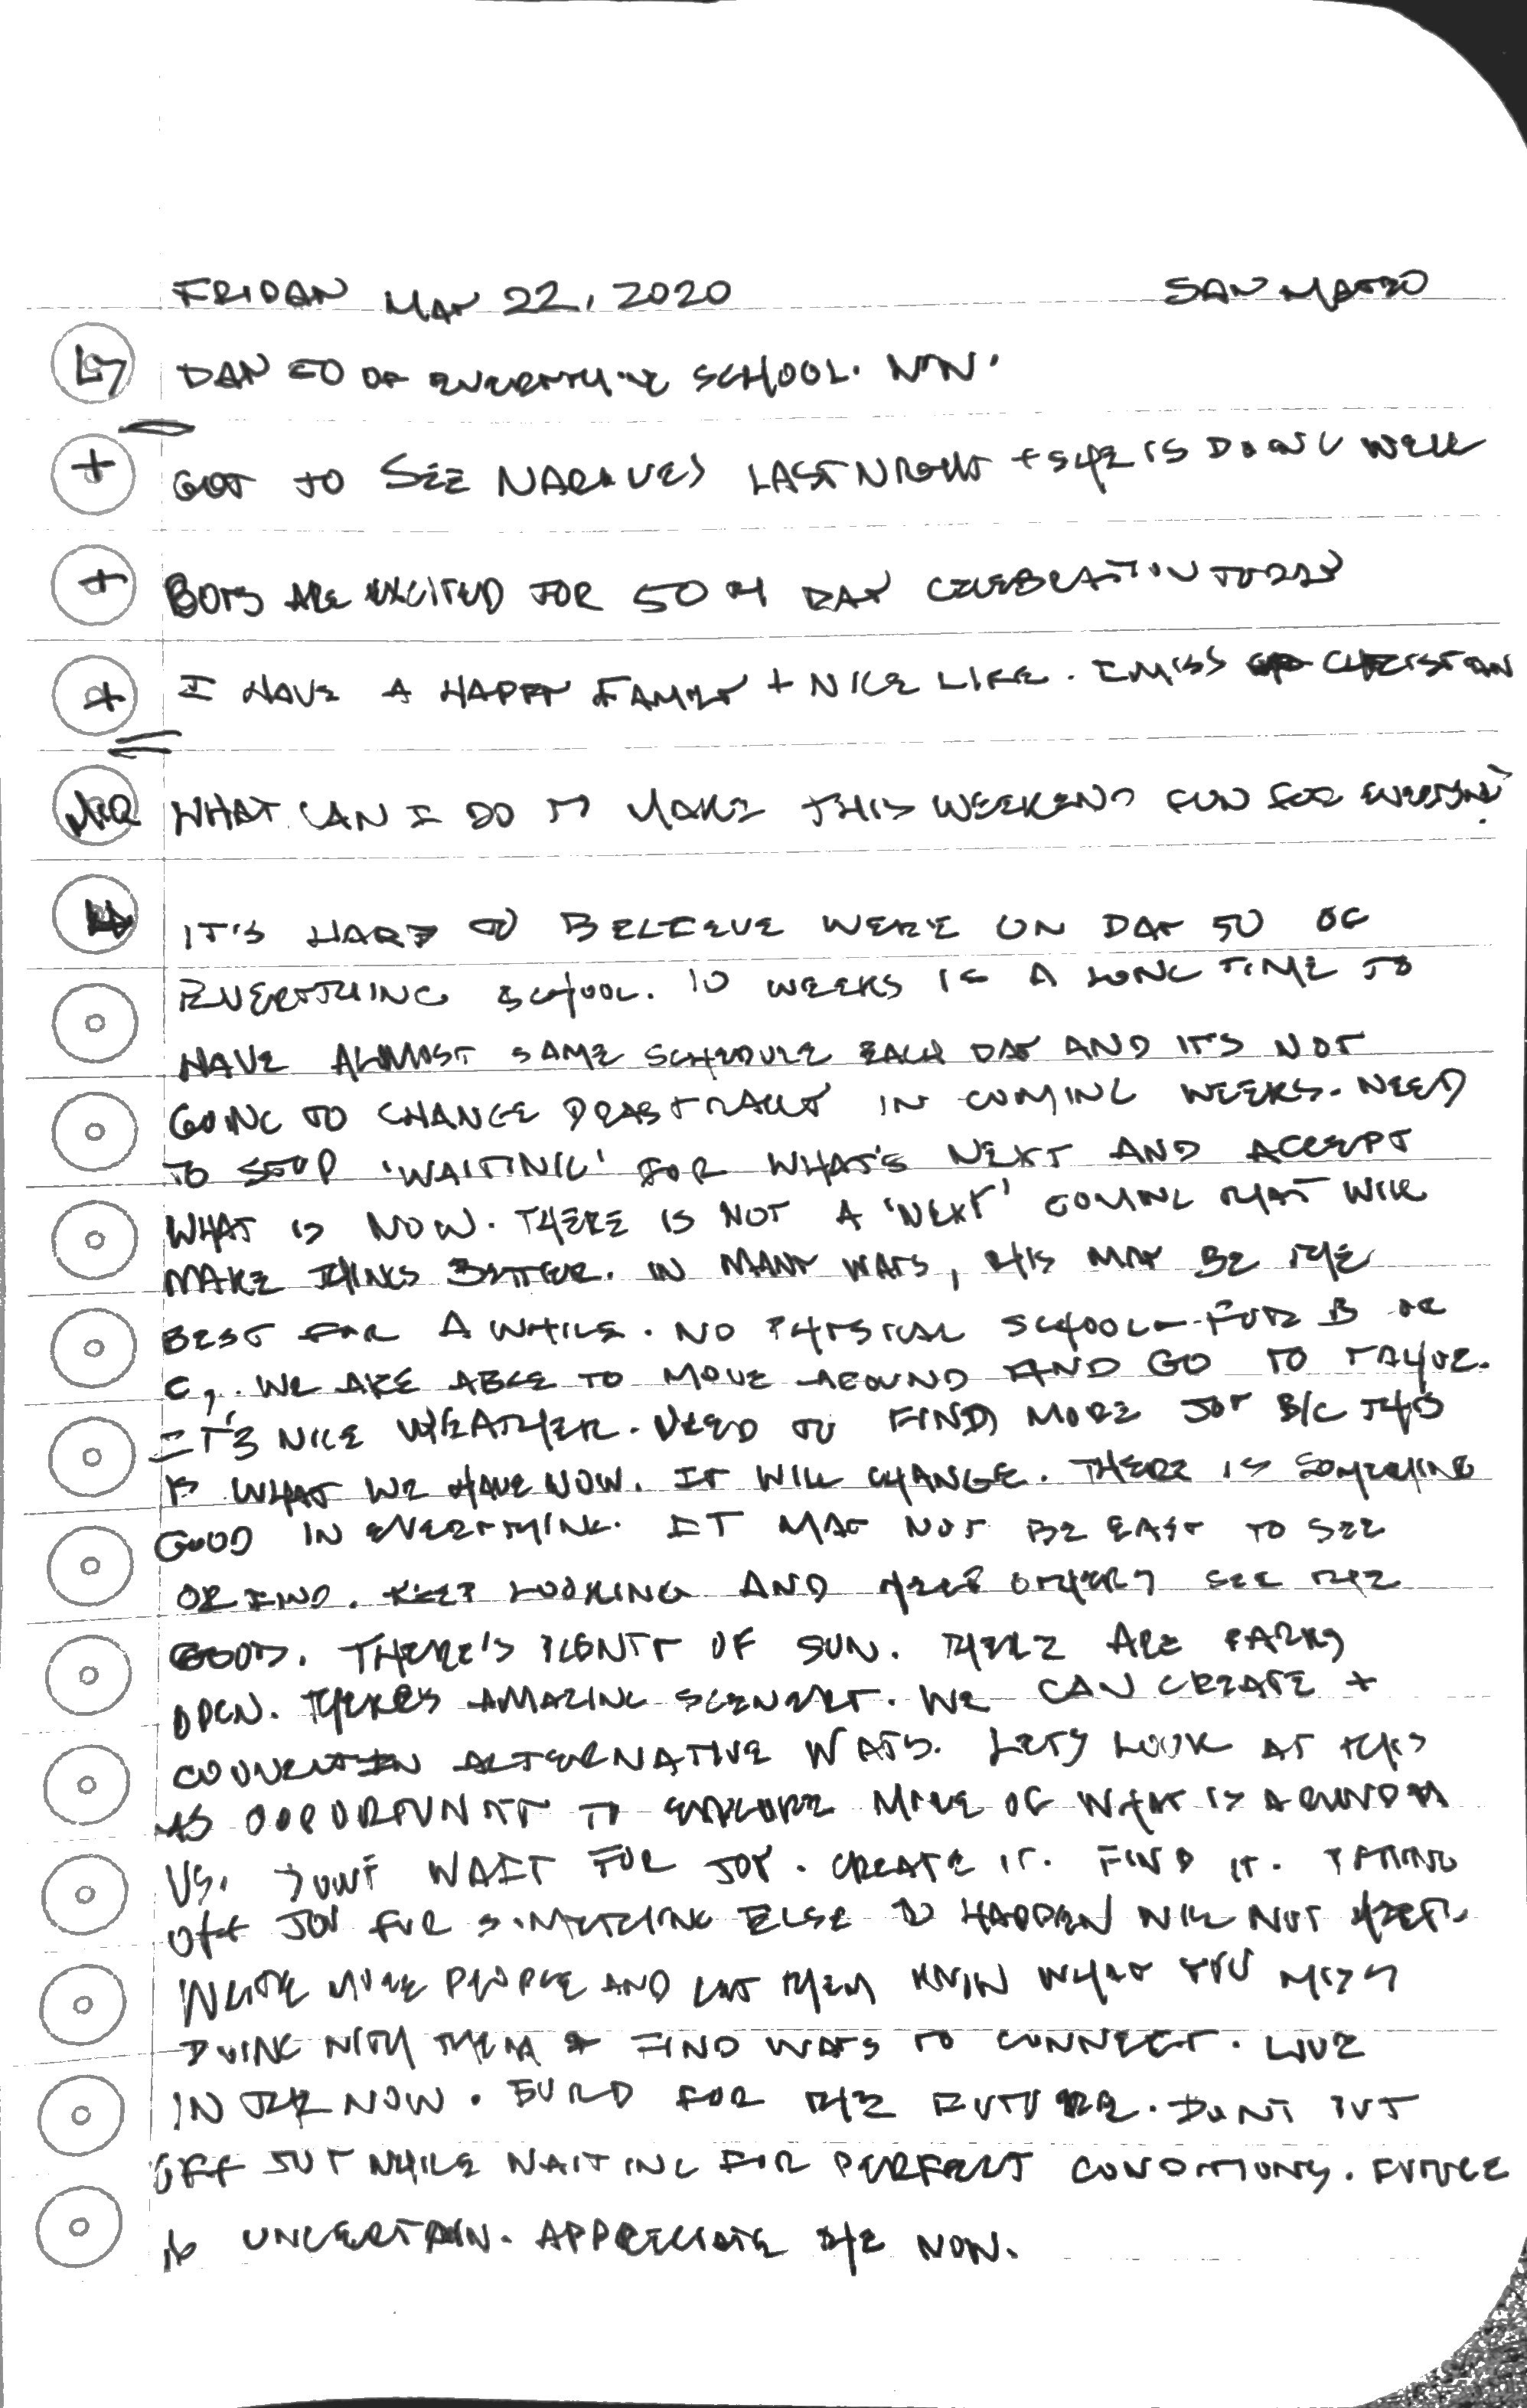 FRIDAY MAY 22, 2020 SAN MATEO
DAY 50 OF EVERYTHING SCHOOL.
+ GOT TO SEE LAST NIGHT + SHE IS DOING WELL
+ BOYS ARE EXCITED FOR 50TH DAY CELEBRATION TODAY
+ I HAVE A HAPPY FAMILY + NICE LIFE. I MISS CHRISTIAN
WHAT CAN I DO TO MAKE THIS WEEKEND FUN FOR EVERYONE?
IT'S HARD TO BELIEVE WE'RE ON DAY 50 OF
EVERYTHING SCHOOL. 10 WEEKS IS A LONG TIME TO
HAVE ALMOST SAME SCHEDULE EACH DAY AND IT'S NOT
GOING TO CHANGE DRASTICALLY IN COMING WEEKS. NEED
TO STOP 'WAITING' FOR WHAT'S NEXT AND ACCEPT
WHAT IS NOW. THERE IS NOT A 'NEXT' COMING THAT WILL
MAKE THINGS BETTER. IN MANY WAYS, THIS MAY BE THE
BEST FOR A WHILE. NO PHYSICAL SCHOOL FOR B OR
C, WE ARE ABLE TO MOVE AROUND AND GO TO TAHOE.
IT'S NICE WEATHER. NEED TO FIND MORE JOY B/C THIS
IS WHAT WE HAVE NOW. IT WILL CHANGE. THERE IS SOMETHING
GOOD IN EVERYTHING. IT MAY NOT BE EASY TO SEE
OR FIND. KEEP LOOKING AND HELP OTHERS SEE THE
GOOD. THERE'S PLENTY OF SUN. THERE ARE PARKS
OPEN. THERE'S AMAZING SCENERY. WE CAN CREATE +
CONNECT IN ALTERNATIVE WAYS. LET'S LOOK AT THIS
AS OPPORTUNITY TO EXPLORE MORE OF WHAT IS AROUND
US. DON'T WAIT FOR JOY. CREATE IT. FIND IT. PUTTING
OFF JOY FOR SOMETHING ELSE TO HAPPEN WILL NOT HELP.
WRITE MORE PEOPLE AND LET THEM KNOW WHAT YOU MISS
DOING WITH THEM & FIND WAYS TO CONNECT. LIVE
IN THE NOW. BUILD FOR THE FUTURE. DON'T PUT
OFF JOY WHILE WAITING FOR PERFECT CONDITIONS. FUTURE
IS UNCERTAIN. APPRECIATE THE NOW.